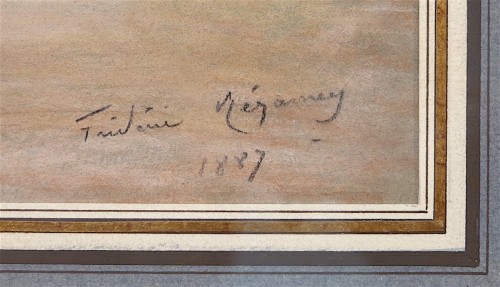 Frédéric Régamey
1887